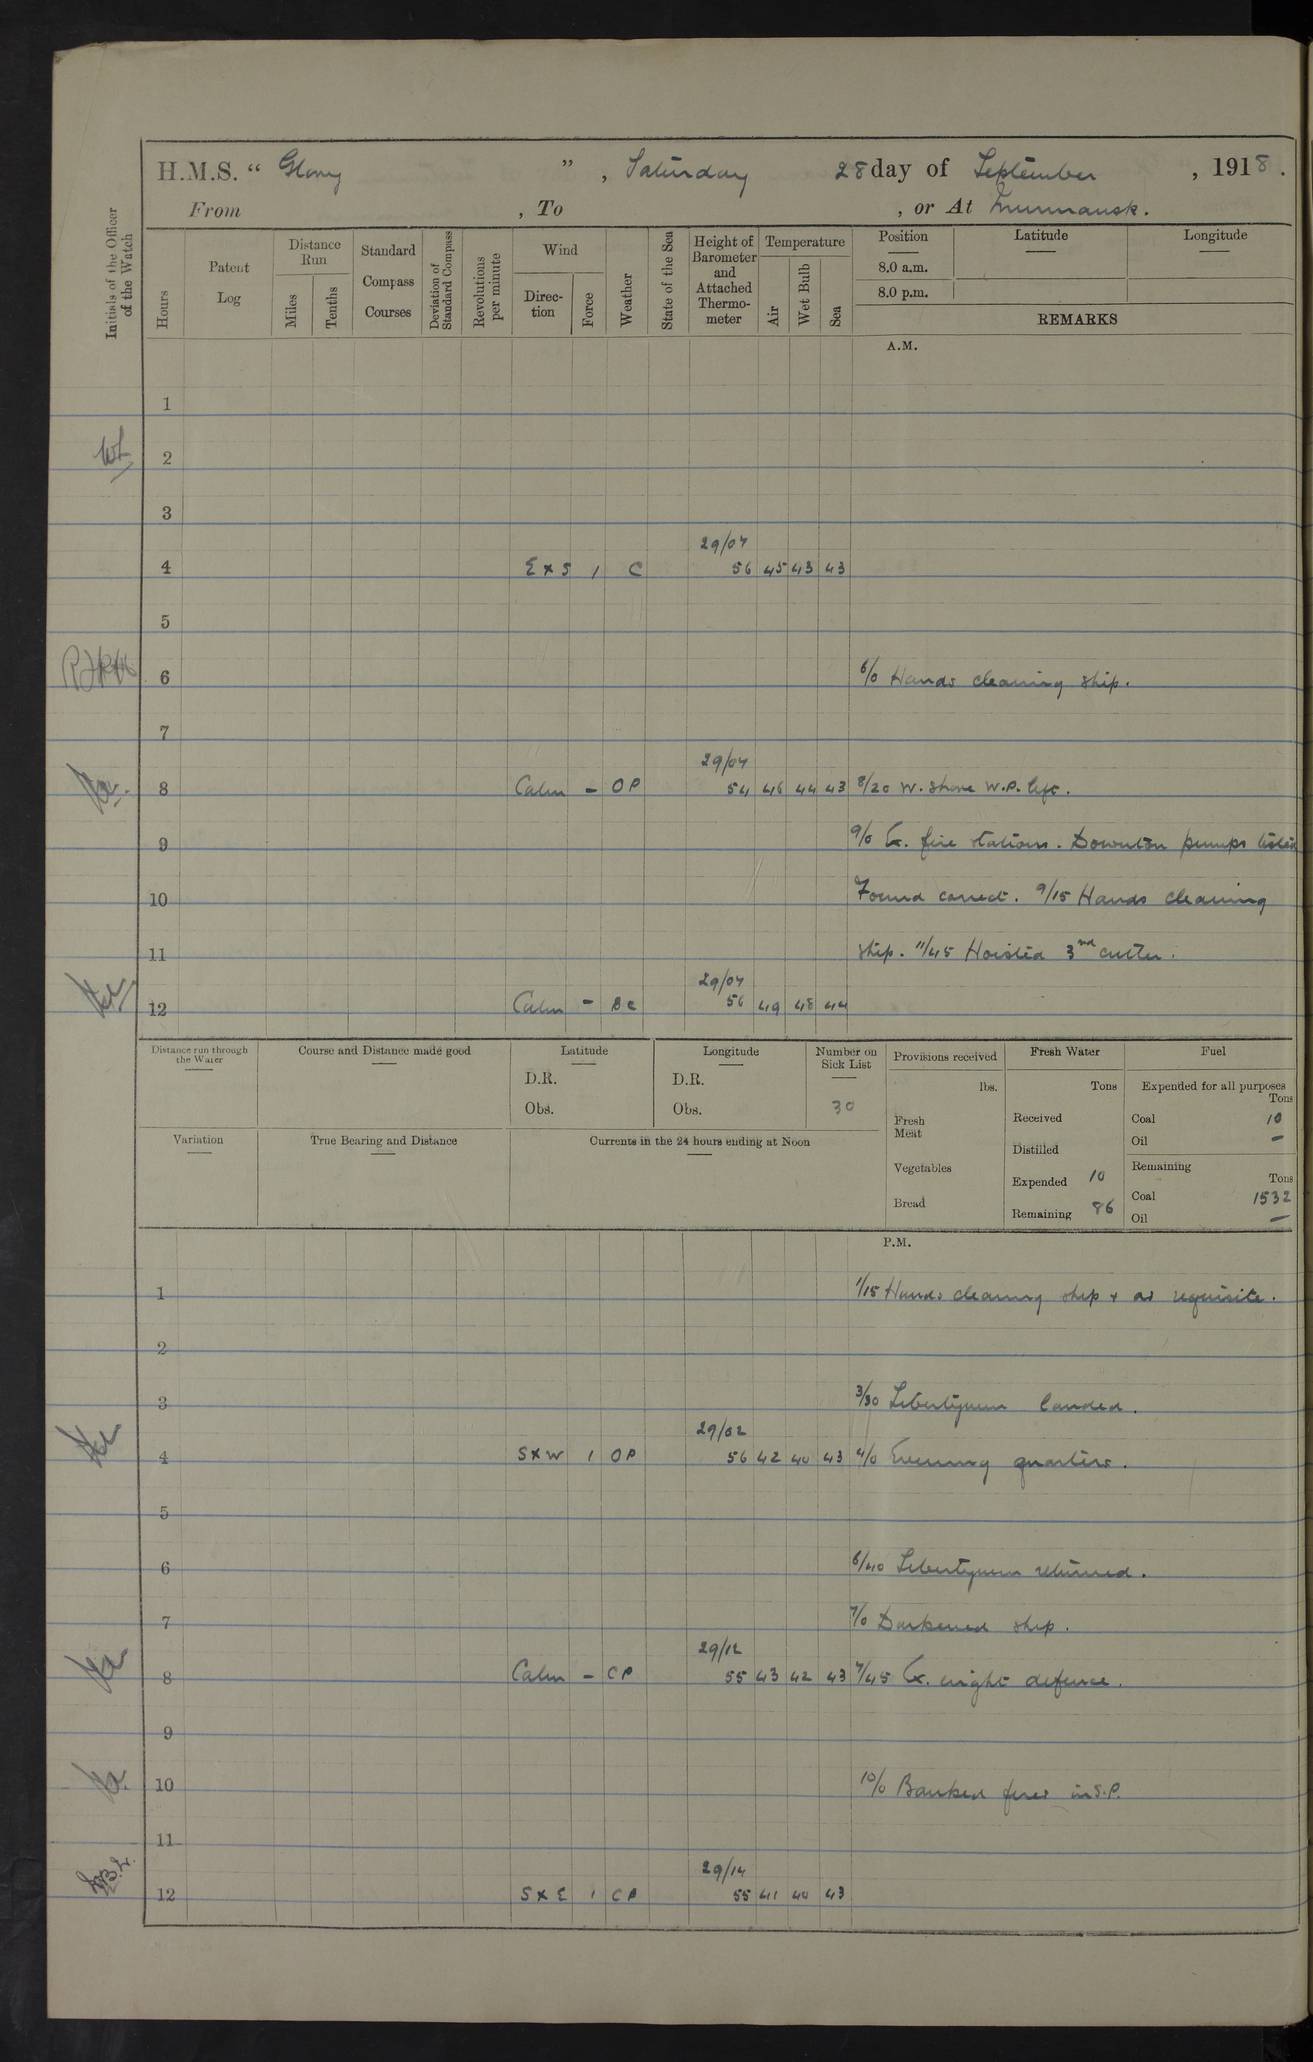 H.M.S. " Glory ", Saturday 28 day of September, 1918.
From , To , or At Murmansk.
Initials of the Officer of the Watch
Hours
Patent Log
Distance Run
Miles
Tenths
Standard Compass Courses
Deviation of Standard Compass
Revolutions per minute
Wind
Direc-tion
Force
Weather
State of the Sea
Height of Barometer and Attached Thermo-meter
Temperature
Air
Wet Bulb
Sea
Position
Latitude
Longitude
8.0 a.m.
8.0 p.m.
REMARKS
A.M.
1
2
3
29/04
4 E x S 1 C 56 45 43 43
5
6 6/0 Hands cleaning ship.
7
29/04
8 Calm - OP 54 46 44 43 8/20 W. Shore W.P. left.
9 9/0 Ex. fire stations. Downton pumps tested
10 Found correct. 9/15 Hands cleaning
11 ship. 11/45 Hoisted 3rd cutter.
29/04
12 Calm - BC 56 49 48 44
Distance run through the Water
Course and Distance made good
Latitude
D.R.
Obs.
Longitude
D.R.
Obs.
Number on Sick List
30
Provisions received
lbs.
Fresh Meat
Vegetables
Bread
Fresh Water
Tons
Received
Distilled
Expended 10
Remaining 86
Fuel
Expended for all purposes
Tons
Coal 10
Oil —
Remaining
Tons
Coal 1532
Oil —
Variation
True Bearing and Distance
Currents in the 24 hours ending at Noon
P.M.
1 1/15 Hands cleaning ship + as requisite.
2
3 3/30 Libertymen landed.
29/02
4 S x W 1 OP 56 42 40 43 4/0 Evening quarters.
5
6 6/40 Libertymen returned.
7 7/0 Darkened ship.
29/12
8 Calm - CP 55 43 42 43 7/45 Ex. night defence.
9
10 10/0 Banked fires in S.P.
11
29/14
12 S x E 1 CP 55 41 40 43